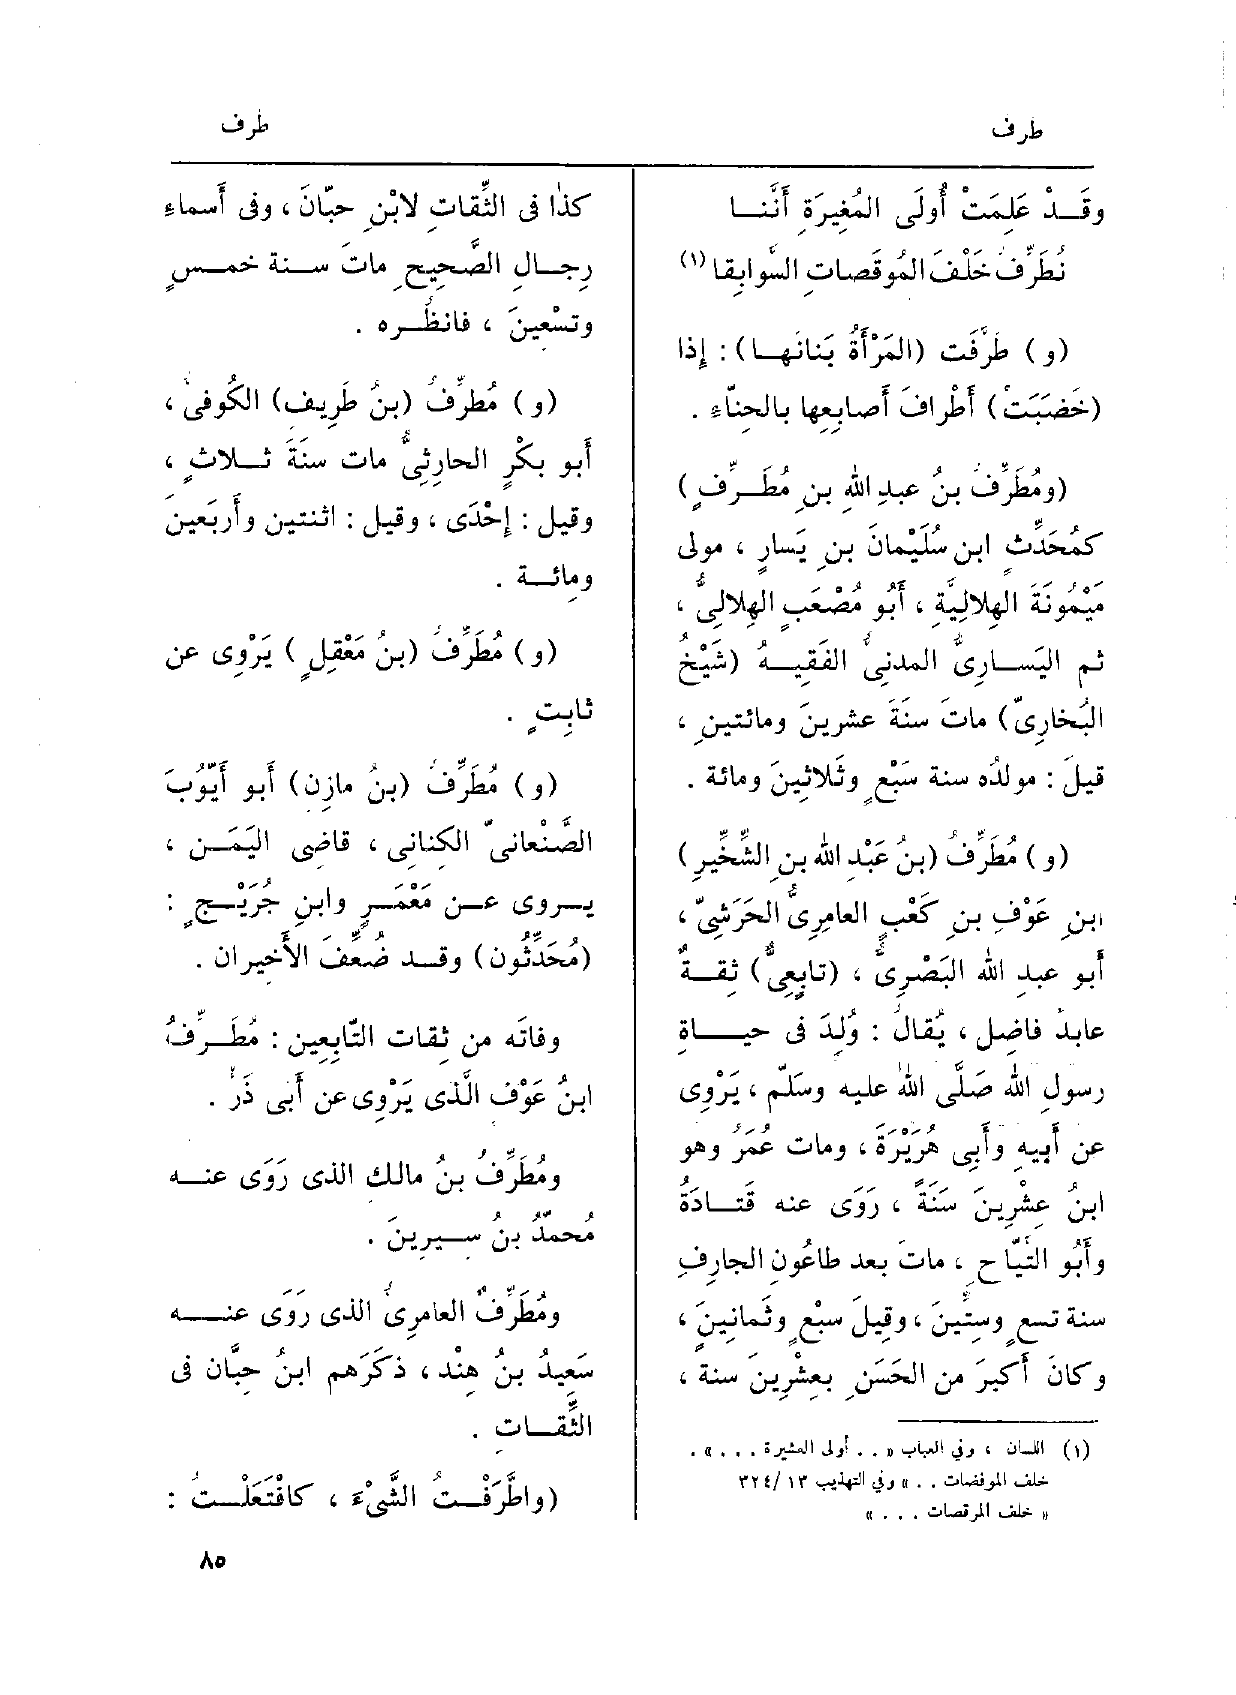 طرف
طرف
وقَـدْ عَلِمَتْ أُولَى المُغِيرَةِ أَنَّنـا
نُطَرِّفُ خَلْفَ المُوقصاتِ السَّوابِقا (١)
(و) طَرَّفَت (المَرْأَةُ بَنانَهـا) : إذا
(خَضَبَتْ) أَطْرافَ أَصابِعِها بالحِنّاء .
(ومُطَرِّفُ بنُ عبدِ اللهِ بنِ مُطَـرِّفٍ)
كمُحَدِّثٍ ابنِ سُلَيْمانَ بنِ يَسارٍ ، مولى
مَيْمُونَةَ الهِلالِيَّةِ ، أَبُو مُصْعَبٍ الهِلالِىُّ ،
ثم اليَسـارِىُّ المدنِىُّ الفَقِيـهُ (شَيْخُ
البُخارِىّ) ماتَ سَنَةَ عشرينَ ومائتينِ ،
قيلَ : مولدُه سنة سَبْعٍ وثَلاثِينَ ومائة .
(و) مُطَرِّفُ (بنُ عَبْدِ اللهِ بنِ الشِّخِّيرِ)
ابنِ عَوْفِ بنِ كَعْبٍ العامِرِىُّ الحَرَشِىّ ،
أَبو عبدِ الله البَصْرِىُّ ، (تابِعِىٌّ) ثِقـةٌ
عابدٌ فاضِل ، يُقالُ : وُلِدَ فى حيـاةِ
رسولِ اللهِ صَلَّى اللهُ عليه وسَلَّم ، يَرْوِى
عن أَبِيهِ وأَبِى هُرَيْرَةَ ، ومات عُمَرُ وهو
ابنُ عِشْرِينَ سَنَةً ، رَوَى عنه قَتـادَةُ
وأَبُو التَّيّاحِ ، ماتَ بعد طاعُونِ الجارِفِ
سنة تسعٍ وستِّينَ ، وقِيلَ سبْعٍ وثَمانِينٍ ،
وكانَ أَكبرَ من الحَسَنِ بِعِشْرِينَ سنة ،
(١) اللسان ، وفي العباب « . . أولى المشيرة . . . » .
خلف الموفضات . . » وفي التهذيب ١٣ /٣٢٤
« خلف المرقصات . . . »
كذا فى الثِّقاتِ لابْنِ حبّانَ ، وفى أَسماءِ
رِجـالِ الصَّحِيحِ ماتَ سـنة خمـسٍ
وتسْعِينَ ، فانظُـره .
(و) مُطَرِّفُ (بنُ طَرِيفٍ) الكُوفىُّ ،
أَبو بكْرٍ الحارِثِىُّ مات سَنَةَ ثـلاثٍ ،
وقيل : إِحْدَى ، وقيل : اثنتينِ وأَربَعِينَ
ومِائـة .
(و) مُطَرِّفُ (بنُ مَعْقِلٍ) يَرْوِى عن
ثابِتٍ .
(و) مُطَرِّفُ (بنُ مازِن) أَبو أَيُّوبَ
الصَّنْعانىّ الكِنانِى ، قاضِى اليَمَـنِ ،
يـروى عـن مَعْمَـرٍ وابنِ جُرَيْـجٍ :
(مُحَدِّثُون) وقـد ضُعِّفَ الأَخِيران .
وفاتَه من ثِقات التَّابِعِين : مُطَـرِّفُ
ابنُ عَوْف الَّذى يَرْوِى عن أَبى ذَرٍّ .
ومُطَرِّفُ بنُ مالك الذى رَوَى عنـه
مُحمَّدُ بنُ سـيرِينَ .
ومُطَرِّفٌ العامِرِىُّ الذى رَوَى عنـه
سَعِيدُ بنُ هِنْد ، ذكَرَهم ابنُ حِبَّان فى
الثِّقـاتِ .
(واطَّرَفْـتُ الشَّىْءَ ، كافْتَعَلْـتُ :
٨٥